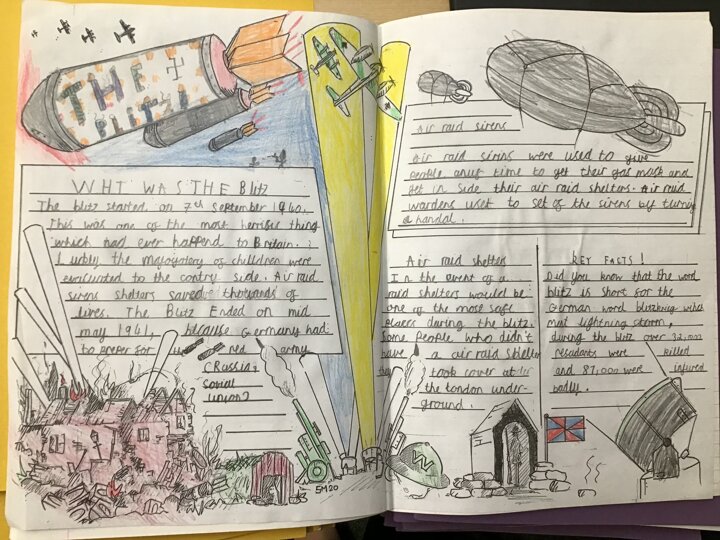 THE
BLITZ
WHT WAS THE Blitz
The blitz started on 7th September 1940.
This was one of the most herrific thing
which had ever happend to Britain.
the majouratory of chilldren were
evacuated to the contry side. Air raid
sirens shelters saved thousands of
lives. The Blitz Ended on mid
may 1941, because Germany had
to preper for red army
(Russia,
sovial
union)
SM20
W
Air raid sirens
Air raid sirins were used to give
people anuf time to get their gas mask and
get in side their air raid shelters. Air raid
wardens uset to set of the sirens by turnig
a handal.
Air raid shelters
In the event of a
raid shelters would be
one of the most safe
places during the blitz.
Some people who didn't
have a air raid shelter
they took cover at
the London under-
ground.
KEY FACTS!
Did you know that the word
blitz is short for the
German word blitzkrieg which
ment lightning storm,
during the blitz over 32,000
resadants were killed
and 87,000 were injured
badly.